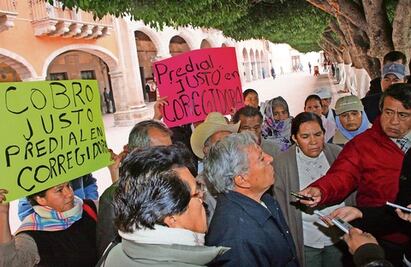 COBRO
JUSTO
PREDIAL EN
CORREGIDORA
Predial
JUSTO en
CORREGIDORA